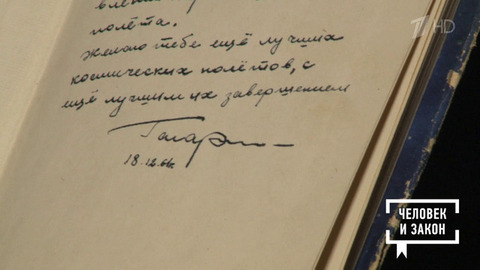 полёта.
желаю тебе ещё лучших
космических полётов, с
ещё лучшим их завершением
Гагарин
18.12.61г.
1HD
ЧЕЛОВЕК
И ЗАКОН